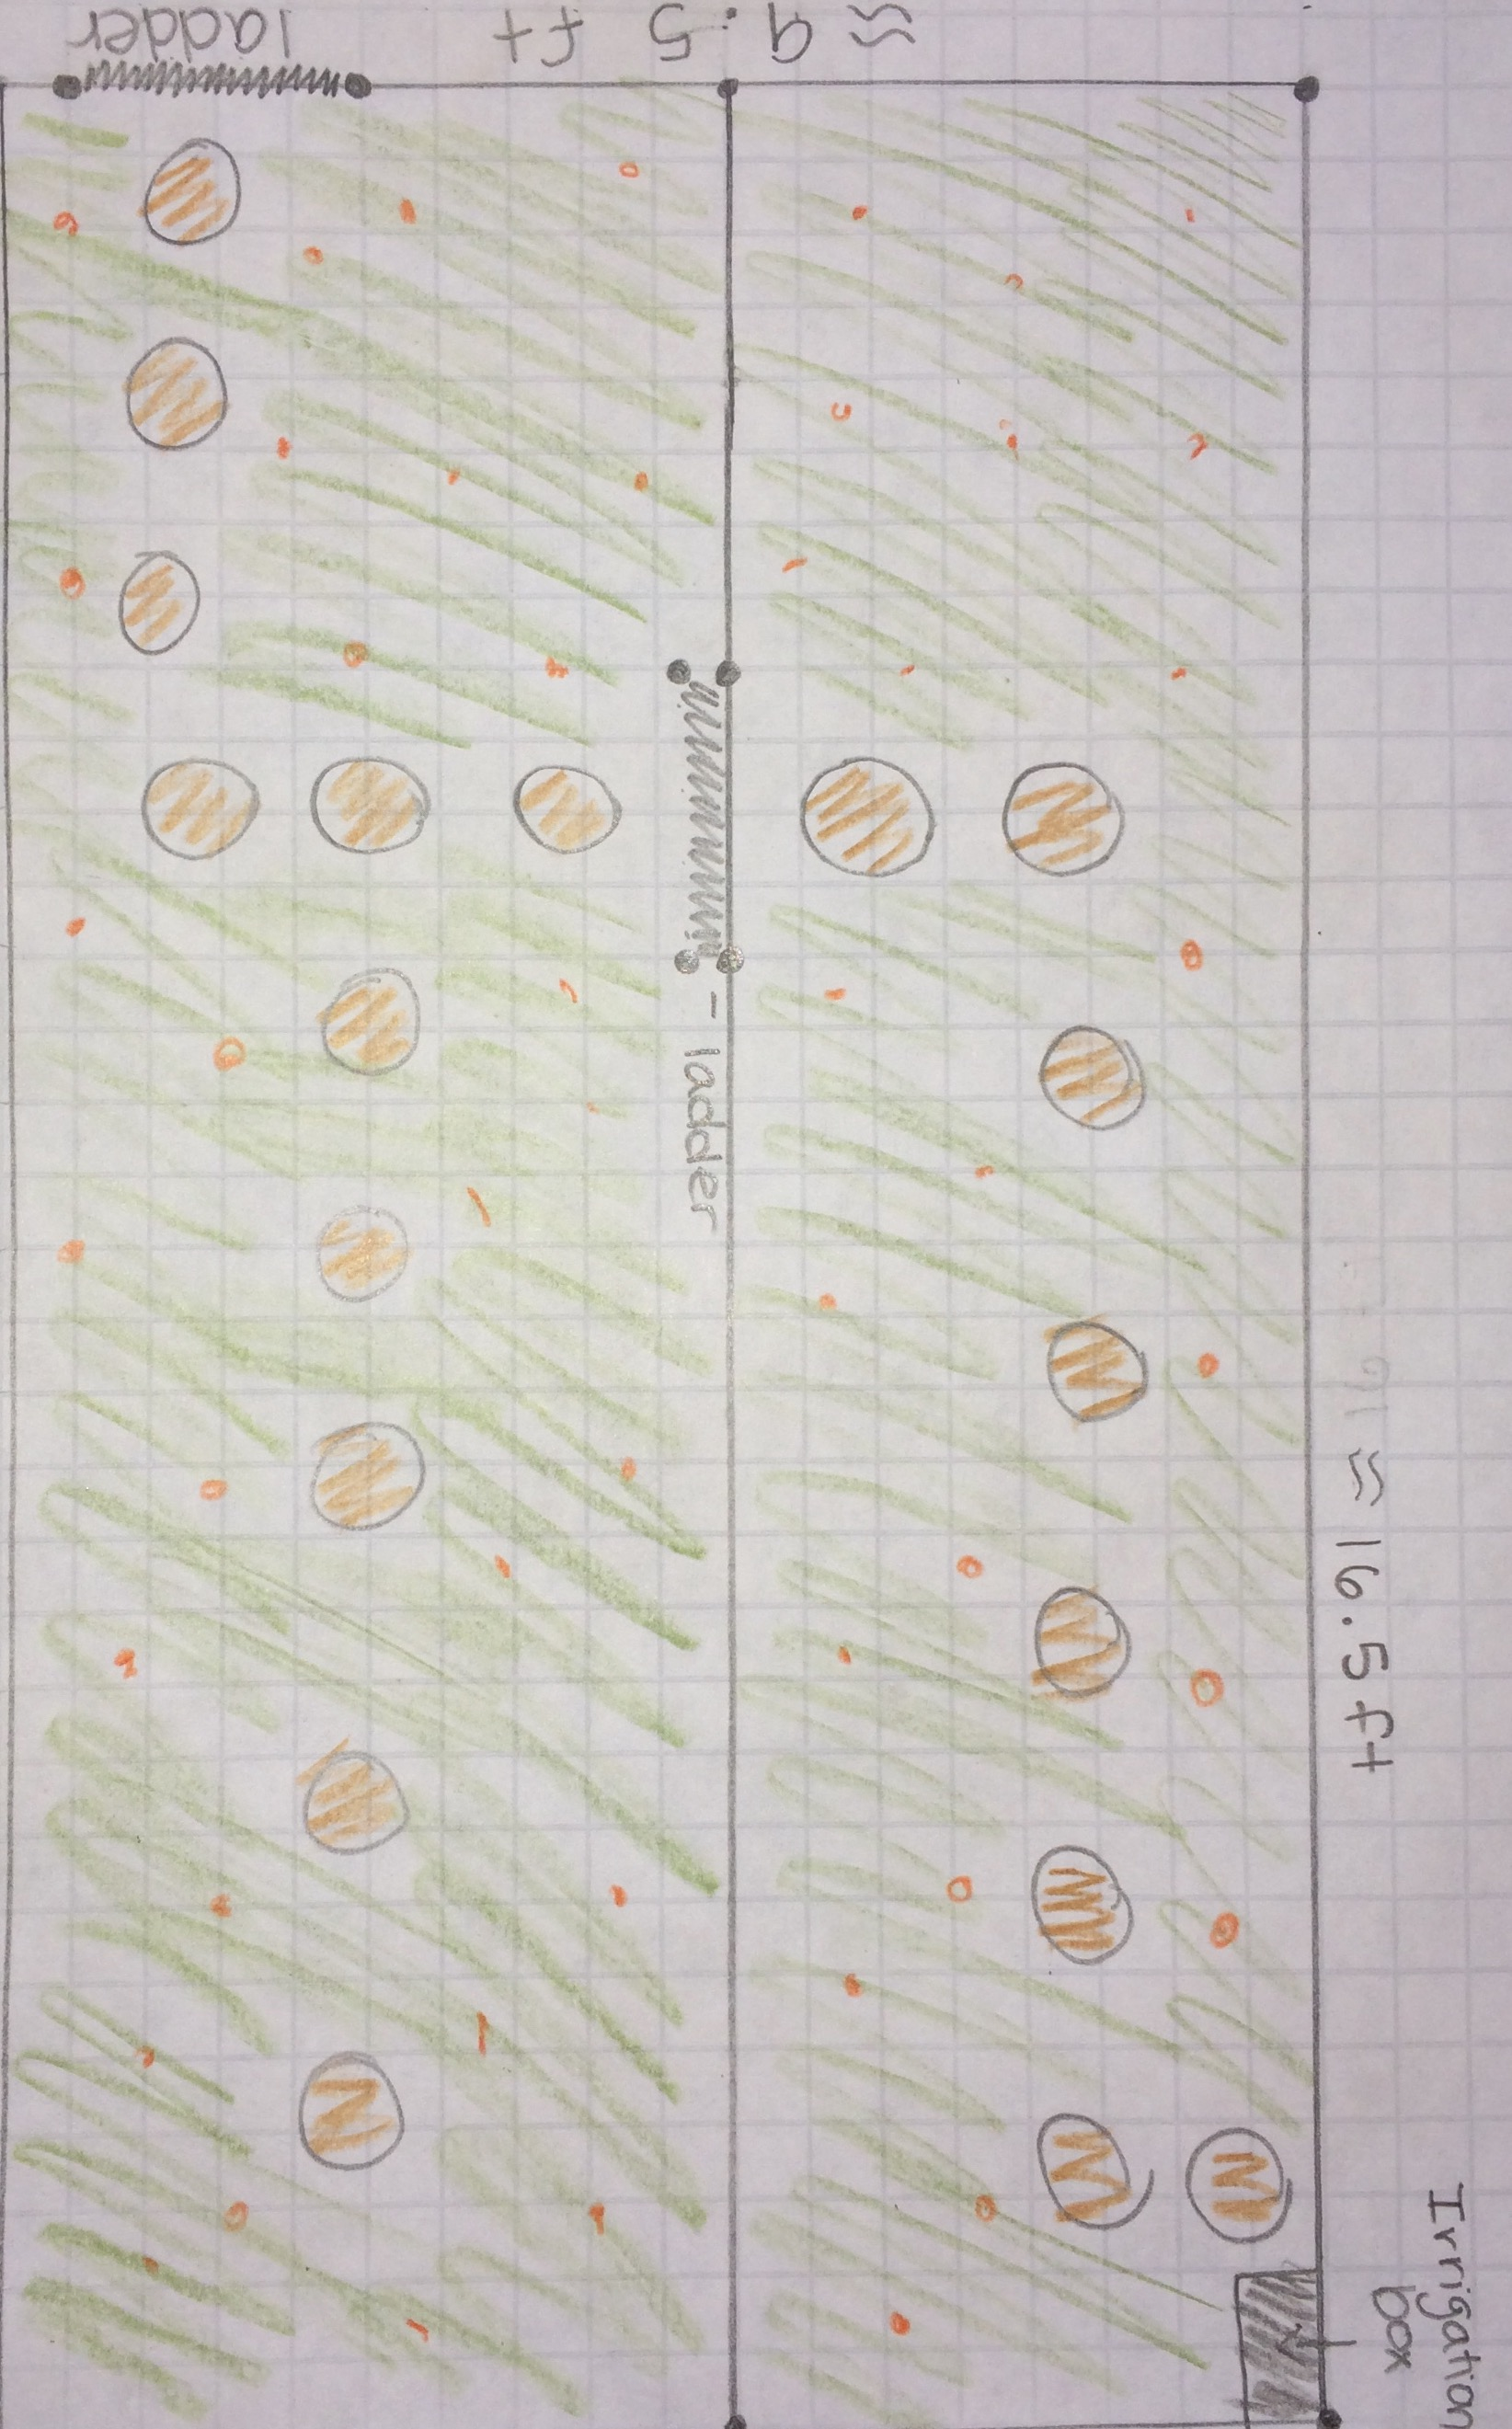 ladder
≈ 9.5 ft
- ladder
≈ 16.5 ft
Irrigation
box